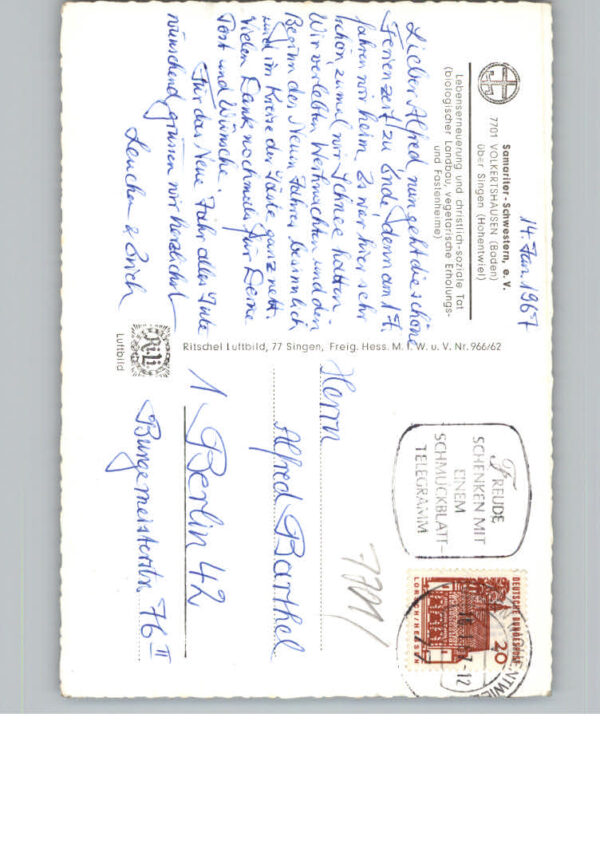 14. Jan. 1967
Samariter-Schwestern, e. V.
7701 VOLKERTSHAUSEN (Baden)
über Singen (Hohentwiel)
Lebenserneuerung und christlich-soziale Tat
(biologischer Landbau, vegetarische Erholungs-
und Fastenheime)
Lieber Alfred nun geht die schöne
Ferienzeit zu Ende, denn am 17.
fahren wir heim. Es war hier sehr
schön, zumal wir Schnee hatten.
Wir verlebten Weihnachten und den
Beginn des Neuen Jahres besinnlich
und im Kreise der Gäste ganz nett.
Vielen Dank nochmals für Deine
Post und Wünsche.
Für das Neue Jahr alles Gute
wünschend grüssen wir herzlichst
Lenchen & Erich
Ritschel Luftbild, 77 Singen, Freig. Hess. M. f. W. u. V. Nr. 966/62
RiLi
Luftbild
FREUDE
SCHENKEN MIT
EINEM
SCHMUCKBLATT-
TELEGRAMM
DEUTSCHE BUNDESPOST
20
LORSCH/HESSEN
-12
7701/
Herrn
Alfred Barthel
1 Berlin 42
Burgemeisterstr. 76 II